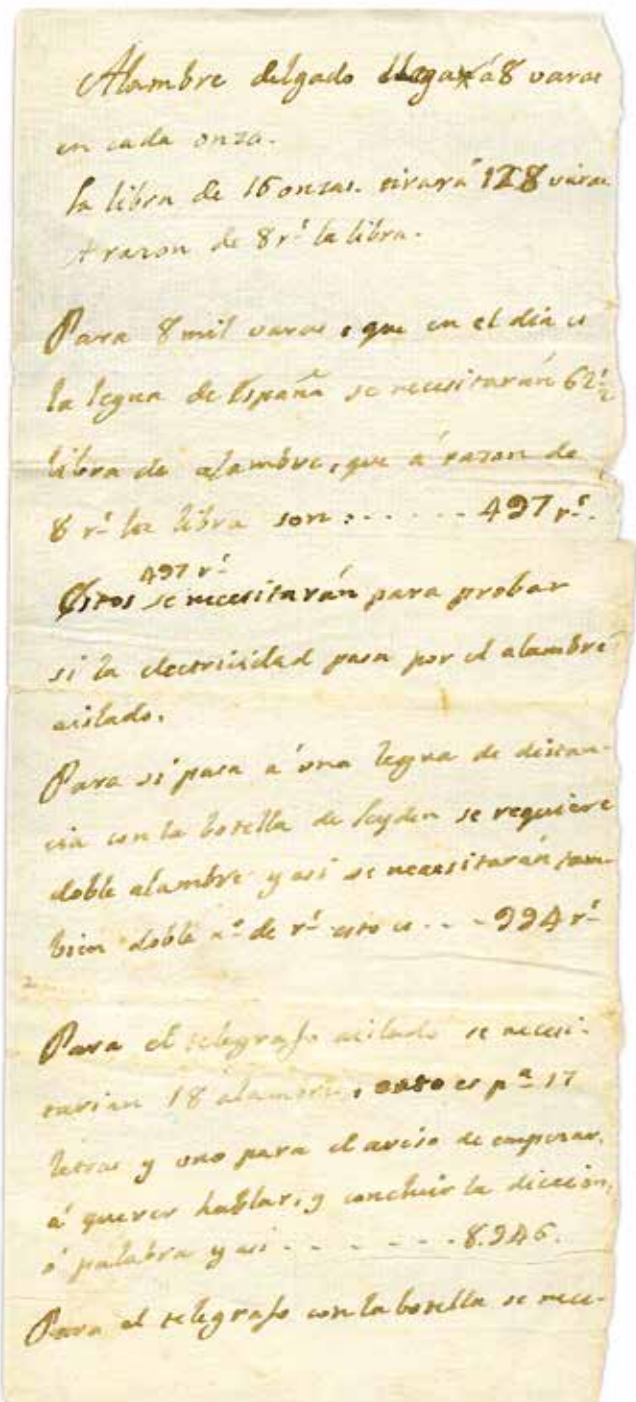 Alambre delgado llega á 8 varas
en cada onza.
la libra de 16 onzas. tirará 128 varas
A razon de 8 r.s la libra.
Para 8 mil varas, que en el dia es
la legua de España se necesitarán 62 1/2
libra de alambre, que á razon de
8 r.s la libra son : - - - - - 497 r.s
497 r.s
Estos se necesitarán para probar
si la electricidad pasa por el alambre
aislado.
Para si pasa á una legua de distan-
cia con la botella de Leyden se requiere
doble alambre y asi se necesitarán tam-
bien doble n.o de r.s esto es - - - 994 r.s
Para el telegrafo aislado se necesi-
tarian 18 alambres, esto es p.a 17
letras y uno para el aviso de empezar,
á querer hablar, y concluir la diccion,
ó palabra y asi - - - - - - 8.946.
Para el telegrafo con la botella se nece-